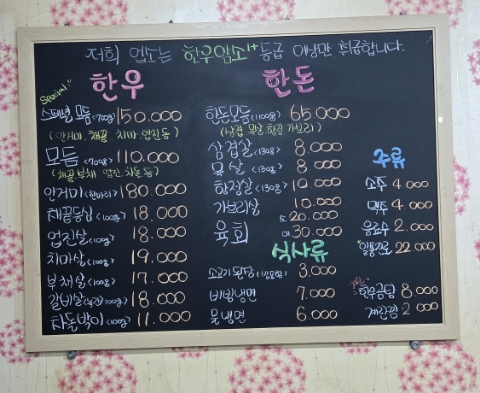 저희 업소는 한우암소1+등급 이상만 취급합니다.
Special!
한우
스페셜 모듬(700g) 150.000
(안거미, 채끝, 치마, 업진 등)
모듬(700g) 110.000
(채끝, 부채, 업진, 차돌 등)
안거미(한마리) 180.000
채끝등심(100g) 18.000
업진살(100g) 18.000
치마살(100g) 19.000
부채살(100g) 17.000
갈비살(100g) 18.000
차돌박이(100g) 11.000
한돈
한돈모듬(1100g) 65.000
(삼겹, 목살, 항정, 가브리)
삼겹살(130g) 8.000
목살(130g) 8.000
항정살(130g) 10.000
가브리살 10.000
육회 소 20.000
대 30.000
식사류
소고기 된장 3.000
비빔냉면 7.000
물냉면 6.000
주류
소주 4000
맥주 4.000
음료수 2.000
일품진로 22.000
한우곰탕 8000
계란찜 2000